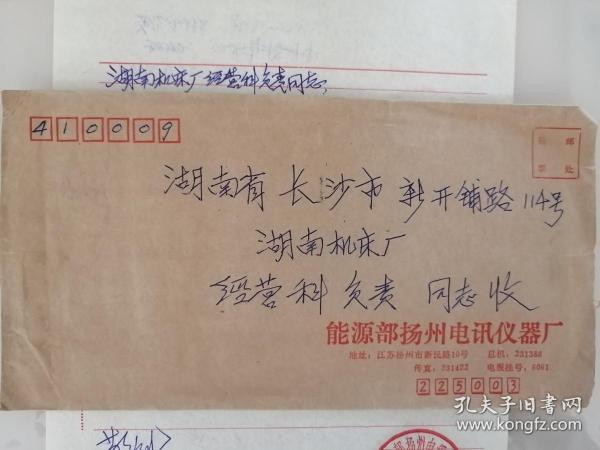 湖南机床厂经营科负责同志:
410009
贴 邮
票 处
湖南省长沙市新开铺路114号
湖南机床厂
经营科负责同志收
能源部扬州电讯仪器厂
地址:江苏扬州市新民路10号 总机:231388
传真:231422 电报挂号:6061
225003
孔夫子旧书网
www.kongfz.com